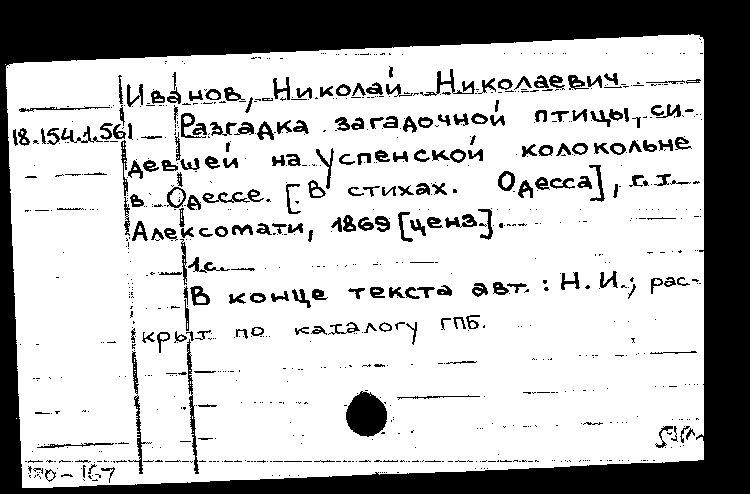 Иванов, Николай Николаевич
18.154.1.561 Разгадка загадочной птицы, си-
девшей на Успенской колокольне
в Одессе. [В стихах. Одесса], г.т.
Алексомати, 1869 [ценз.].
1с.
В конце текста авт.: Н.И.; рас-
крыт по каталогу ГПБ.
180-167